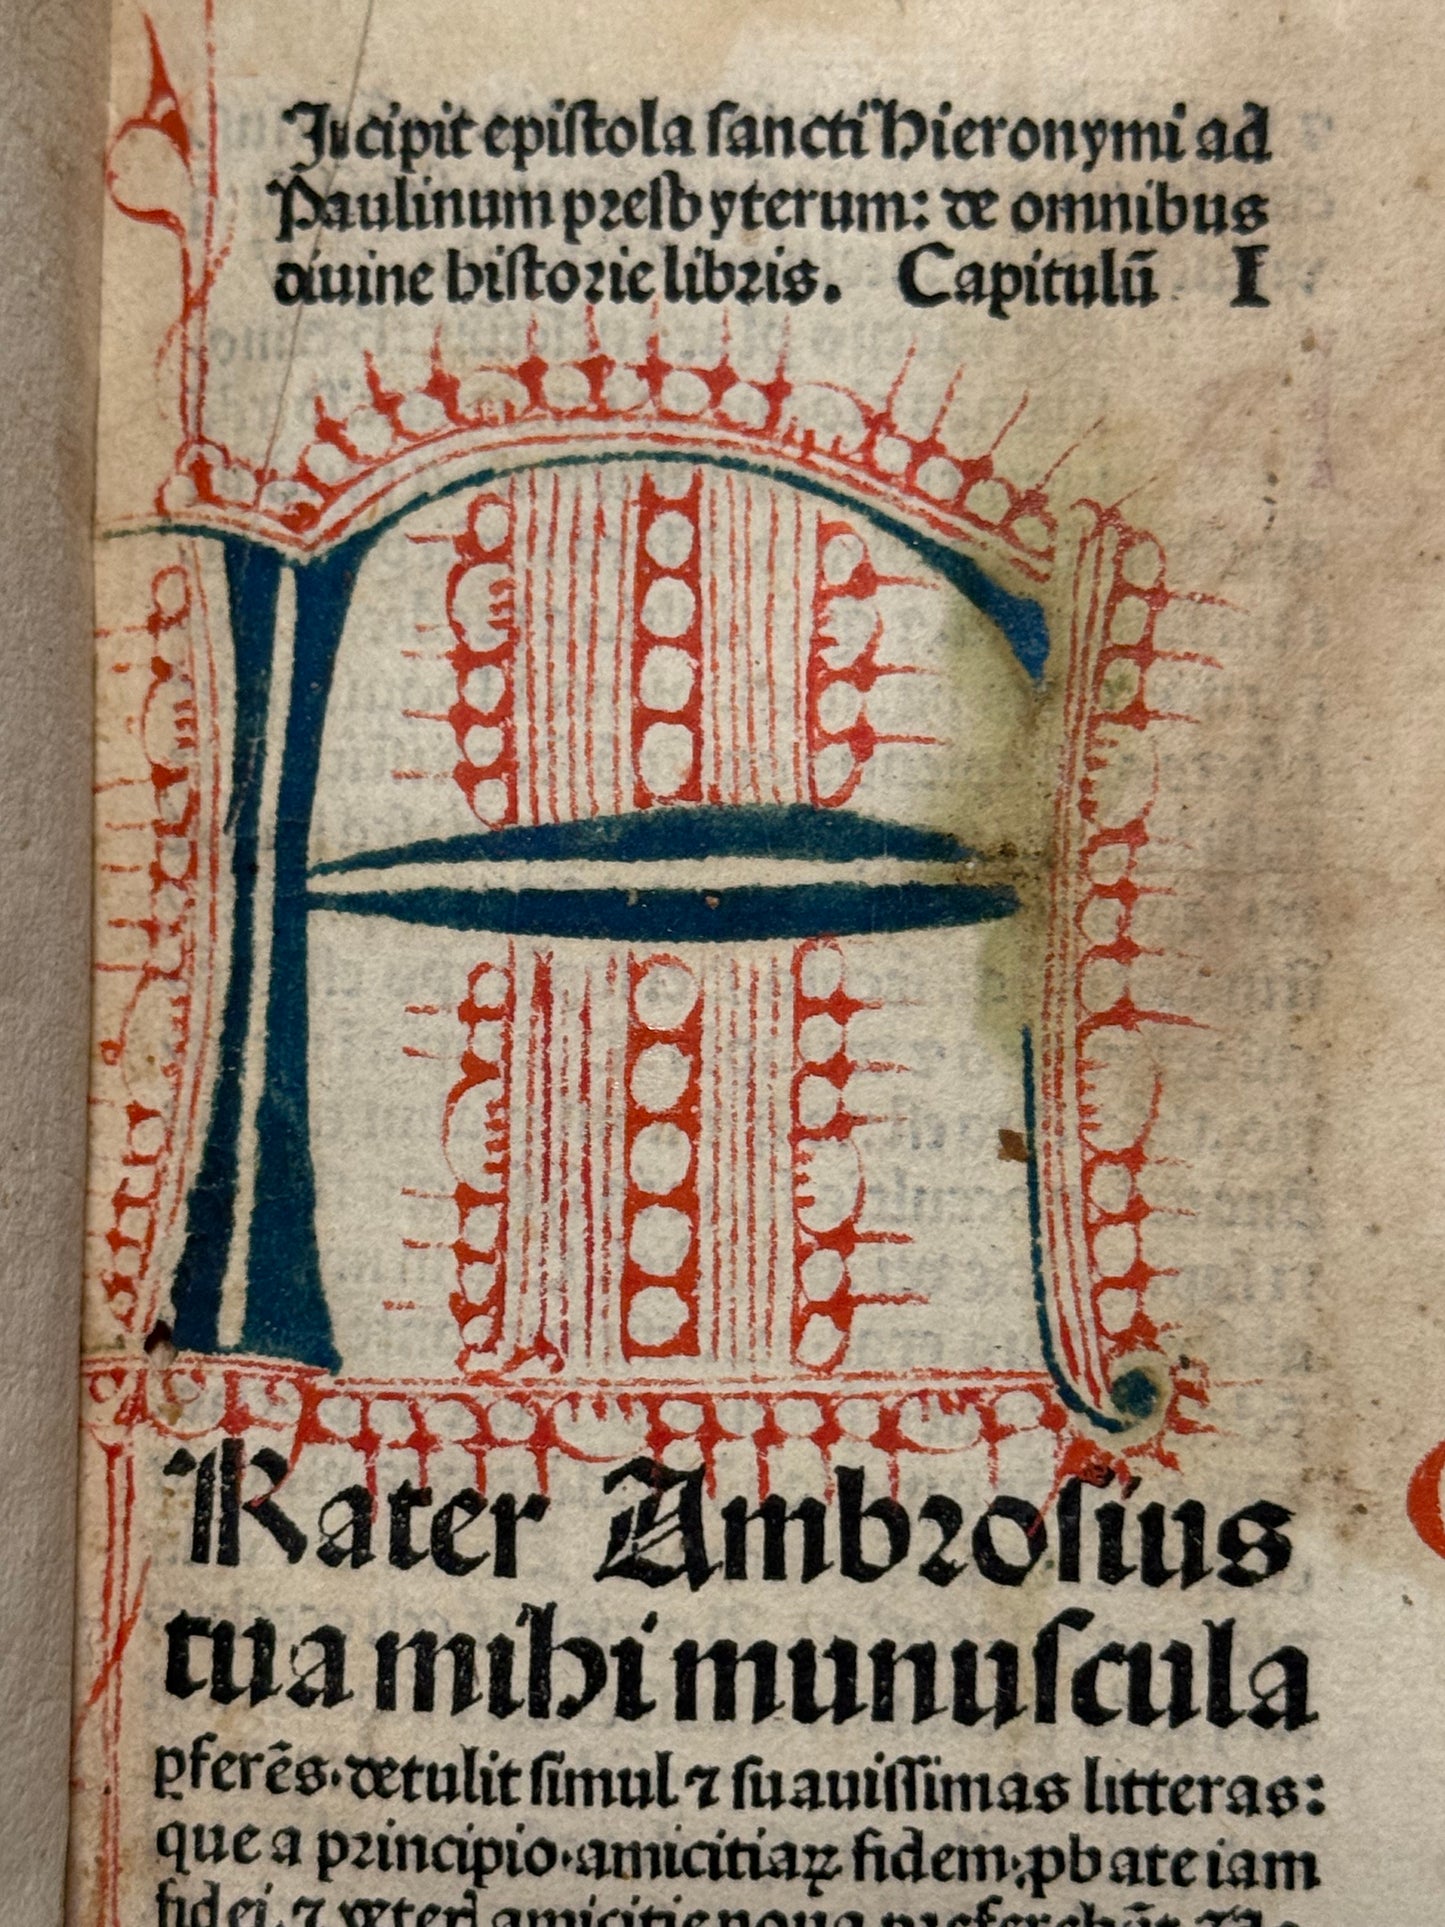 Incipit epiſtola ſancti Hieronymi ad
Paulinum preſbyterum: de omnibus
diuine hiſtorie libris. Capitulū I
F
Rater Ambroſius
tua mihi munuſcula
ꝑferēs·detulit ſimul ⁊ ſuauiſſimas litteras:
que a principio·amicitiaꝝ fidem ꝓbate iam
fidei ⁊ amicitie noua